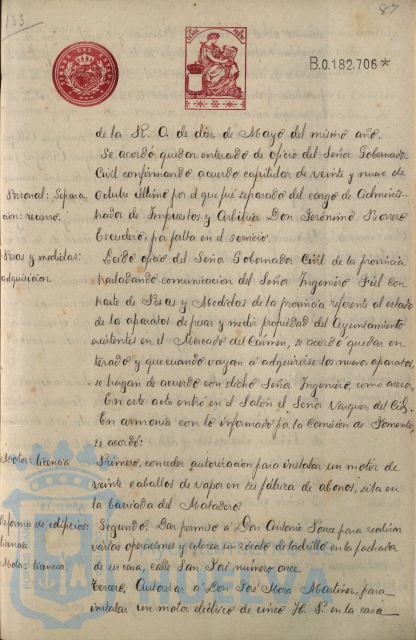 133
87
B.0.182.706*
de la R. O. de diez de Mayo del mismo año.
Se acordó quedar enterado de oficio del Señor Gobernador
Civil confirmando acuerdo capitular de veinte y nueve de
Personal: Separa
Octubre último por el que fué separado del cargo de Adminis-
ción: recurso.
trador de Impuestos y Arbitrios Don Jerónimo Borrero
Escudero, por falta en el servicio.
Pesas y medidas:
Leido oficio del Señor Gobernador Civil de la provincia
adquisicion.
trasladando comunicacion del Señor Ingeniero Fiel Con
traste de Pesas y Medidas de la provincia referente al estado
de los aparatos de pesar y medir propiedad del Ayuntamiento
existentes en el Mercado del Carmen, se acordó quedar en
terado y que cuando vayan á adquirirse los nuevos aparatos,
se hagan de acuerdo con dicho Señor Ingeniero, como asesor.
En este acto entró en el Salón el Señor Vazquez del Cid.
En armonía con lo informado por la Comisión de Fomento,
se acordó:
Motor: licencia
Primero, conceder autorizacion para instalar un motor de
veinte caballos de vapor en su fábrica de abonos, sita en
la barriada del Matadero.
Reforma de edificios:
Segundo. Dar permiso á Don Antonio Ponce para realizar
licencia
varias operaciones y colocar un zócalo de ladrillo en la fachada
de su casa, calle San José número once.
Motor: licencia.
Tercero, Autorizar á Don José Mora Martinez, para
instalar un motor eléctrico de cinco H. P. en la casa